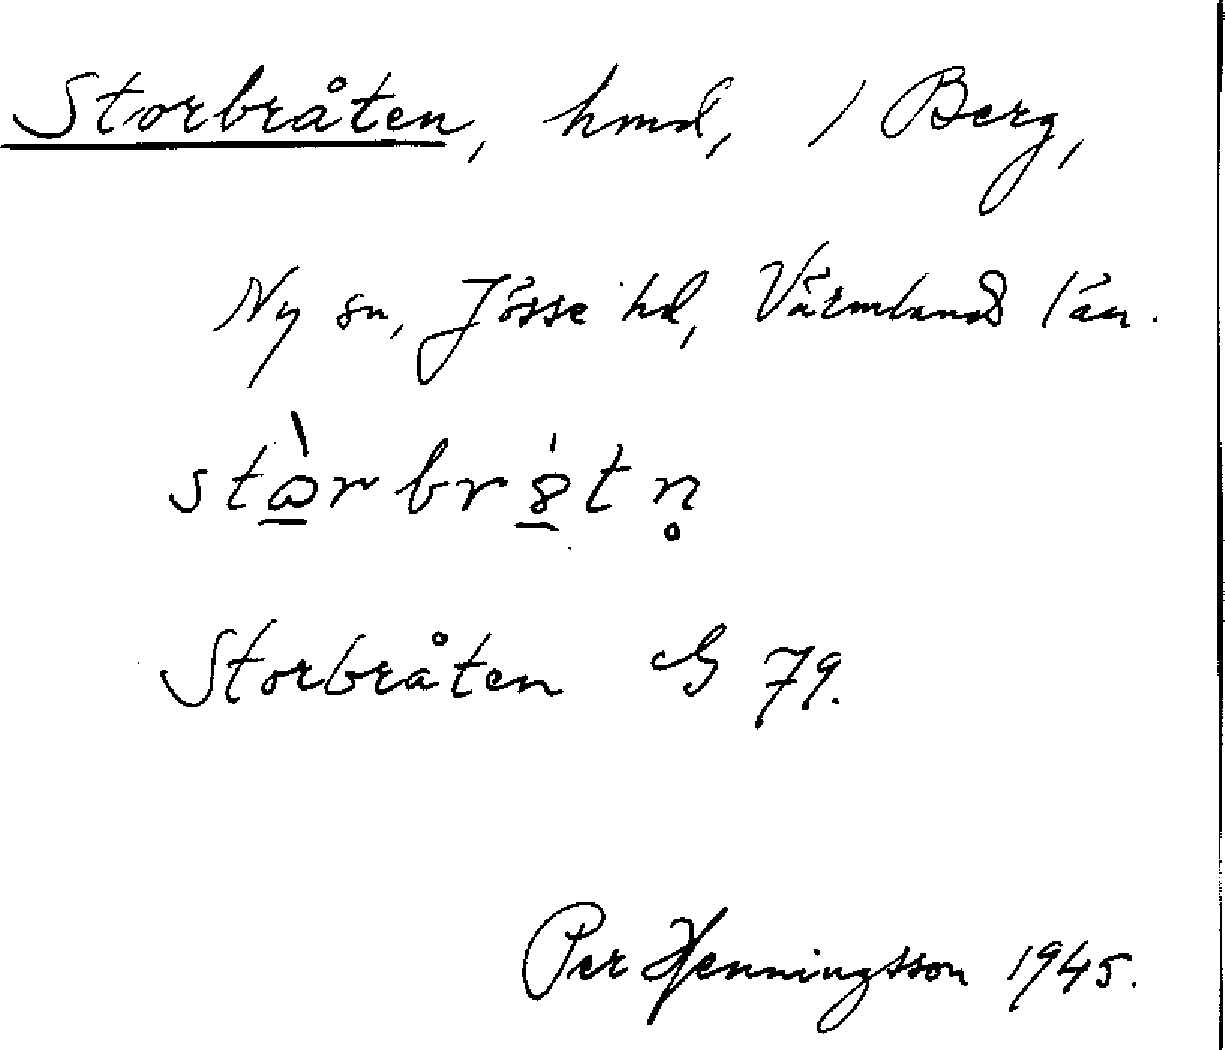 Storbråten, hmd, i Berg,
Ny sn, Jösse hd, Värmlands län.
Storbråten G 79.
Per Henningsson 1945.